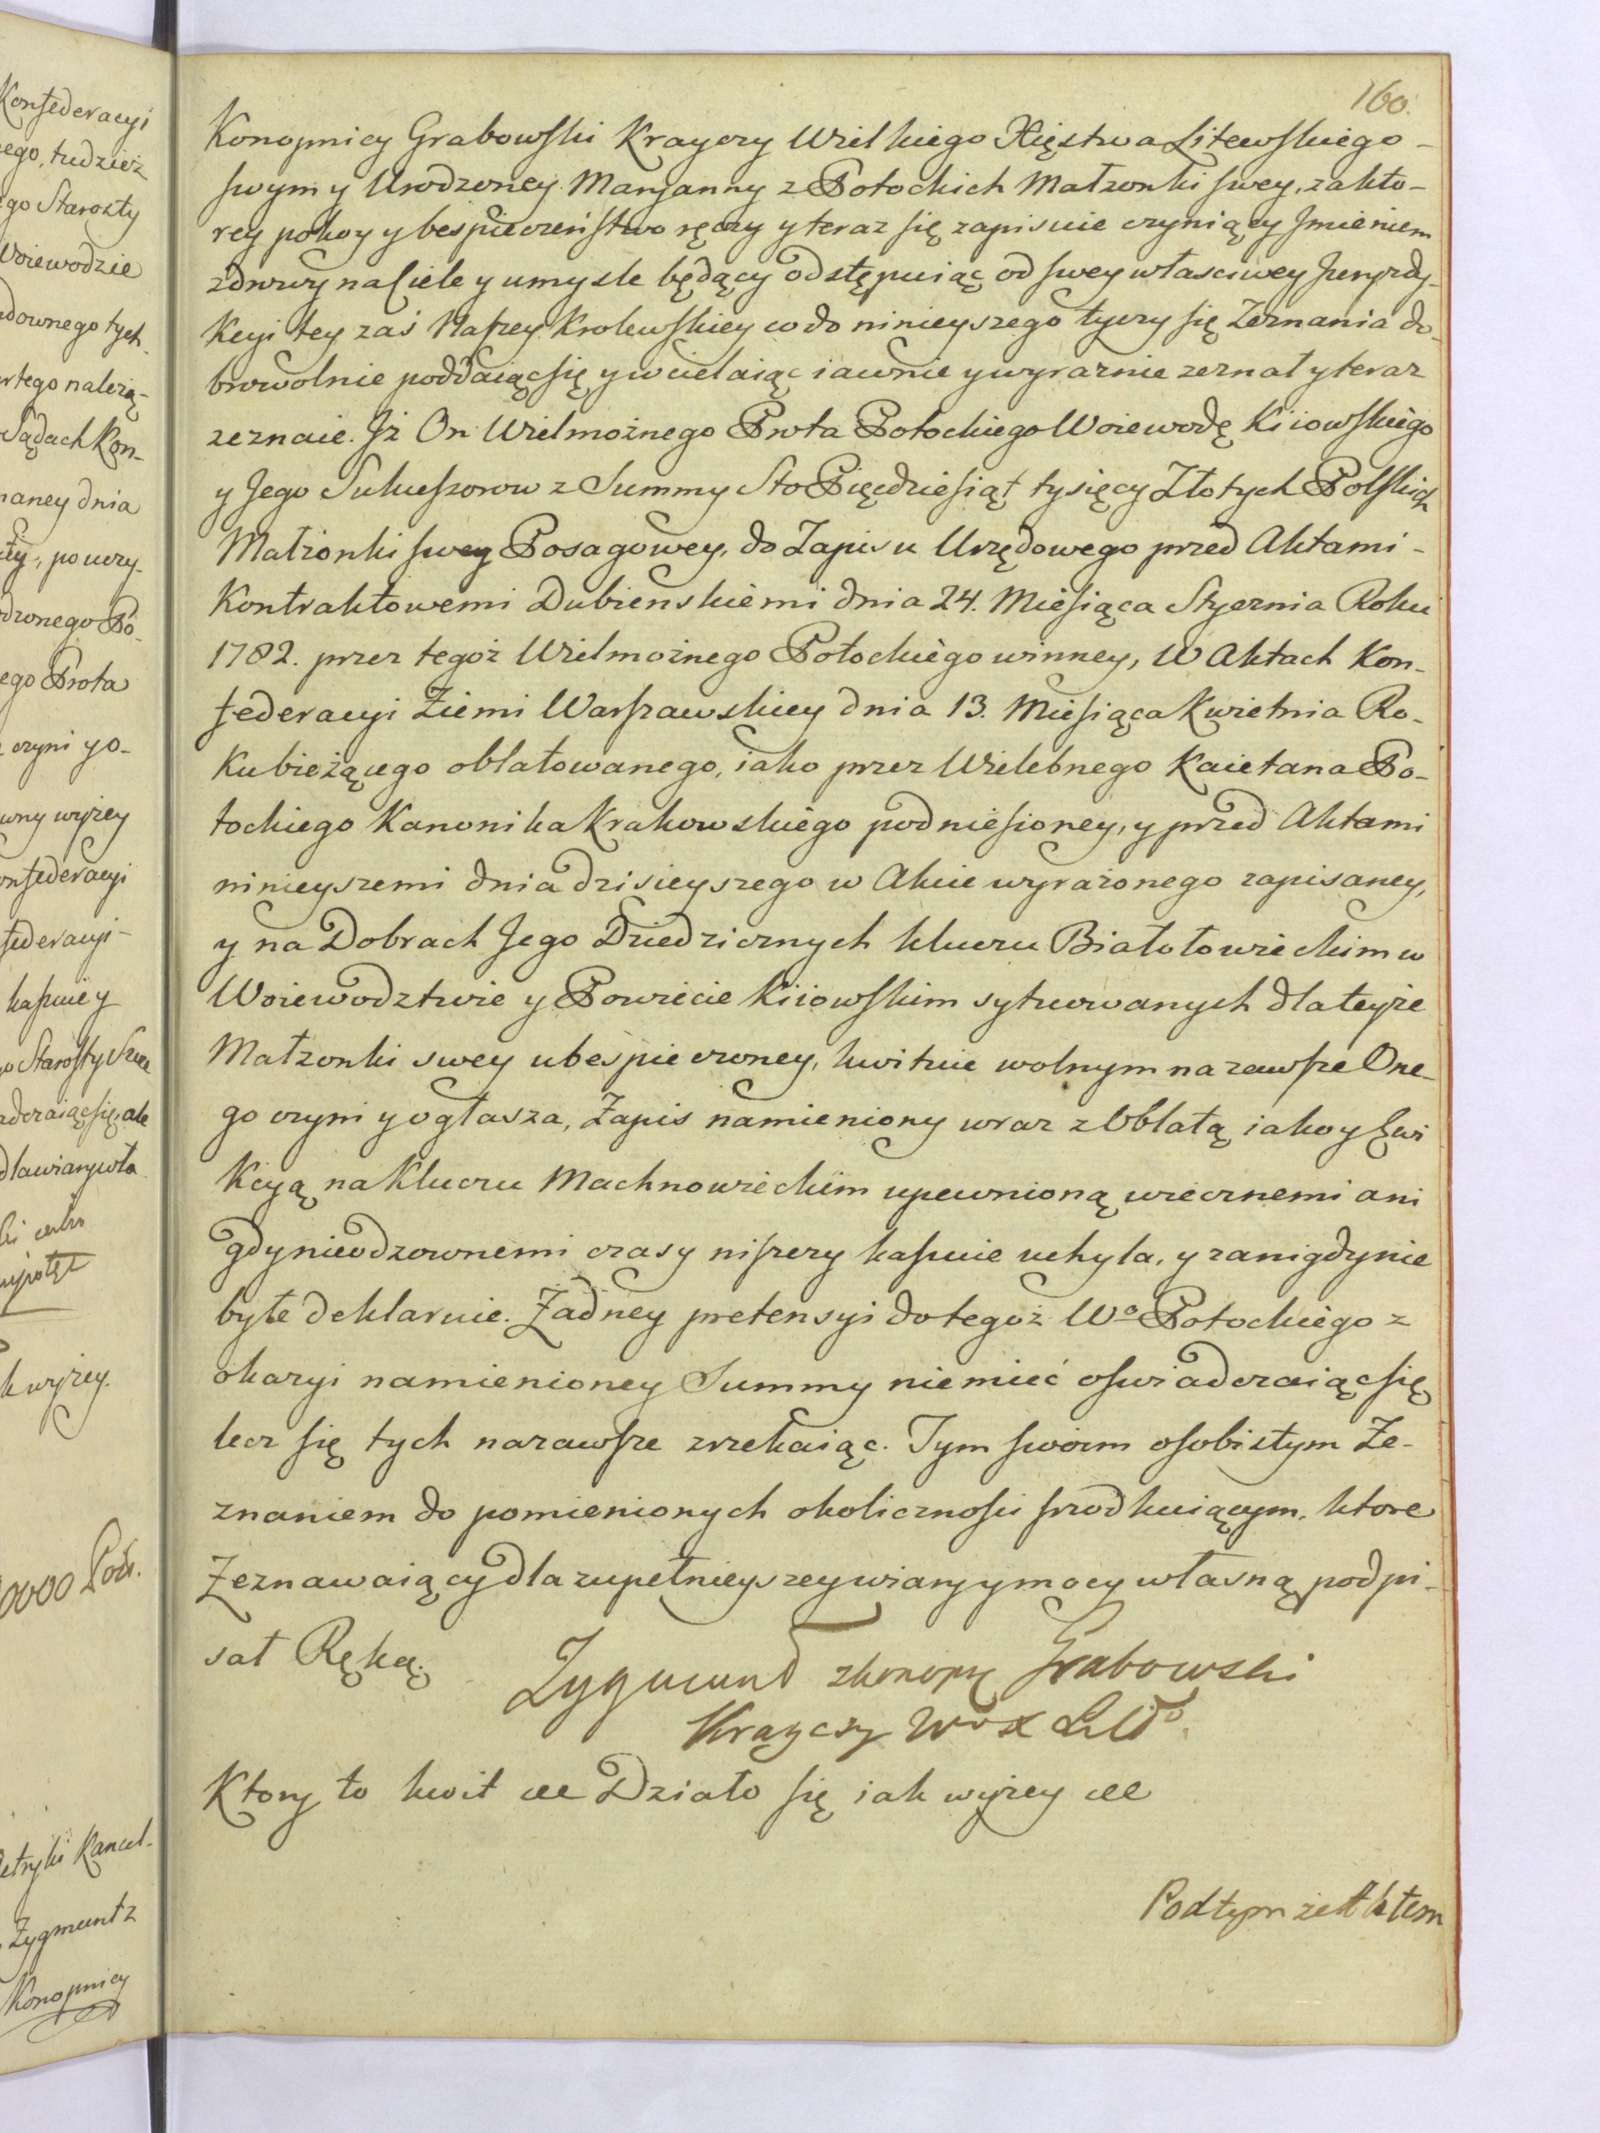 160.
Konopnicy Grabowski Krayczy Wielkiego Xięstwa Litewskiego -
swym y Urodzoney Maryanny z Potockich Małzonki swey, za kto-
rey pokoy y bespieczeństwo ręczy y teraz się zapisuie czyniący Jmieniem
zdrowy na Ciele y umysle będący odstępuiąc od swey własciwey Juryzdy-
kcyi tey zaś Naszey Krolewskiey co do ninieyszego tyczy się Zeznania do-
browolnie poddaiąc się y wcielaiąc iawnie y wyraznie zeznał y teraz
zeznaie. Jż On Wielmożnego Prota Potockiego Woiewodę Kiiowskiego
y Jego Sukcessorow z Summy Sto Pięćdziesiąt tysięcy Złotych Polskich
Małżonki swey Posagowey, do Zapisu Urzędowego przed Aktami -
Kontraktowemi Dubienskiemi dnia 24. Miesiąca Stycznia Roku
1782. przez tegoż Wielmożnego Potockiego winney, W Aktach Kon-
federacyi Ziemi Warszawskiey dnia 13. Miesiąca Kwietnia Ro-
ku bieżącego oblatowanego, iako przez Wielebnego Kaietana Po-
tockiego Kanonika Krakowskiego podniesioney, y przed Aktami
ninieyszemi dnia dzisieyszego w Akcie wyrażonego zapisaney,
y na Dobrach Jego Dziedzicznych kluczu Białołowieckim w
Woiewodztwie y Powiecie Kiiowskim sytuowanych dla teyże
Małzonki swey ubespieczoney, kwituie wolnym na zawsze One-
go czyni y ogłasza, Zapis namieniony wraz z Oblatą iako y Ewi
kcyą na Kluczu Machnowieckim upewnioną wiecznemi ani
gdy nieodzownemi czasy niszczy kassuie uchyla, y za nigdy nie
byłe deklaruie. Żadney pretensyi do tegoż Wo Potockiego z
okazyi namienioney Summy nie mieć oswiadczaiąc się
lecz się tych na zawsze zrzekaiąc. Tym swoim osobistym Ze-
znaniem do pomienionych okolicznosci srzodkuiącym, ktore
Zeznawaiący dla zupełnieyszey wiary y mocy własną podpi-
sał Ręką.
Zygmund z Konopnicy Grabowski
Krayczy W X Litt
Ktory to kwit etc Działo się iak wyżey etc
Pod tym że Aktem